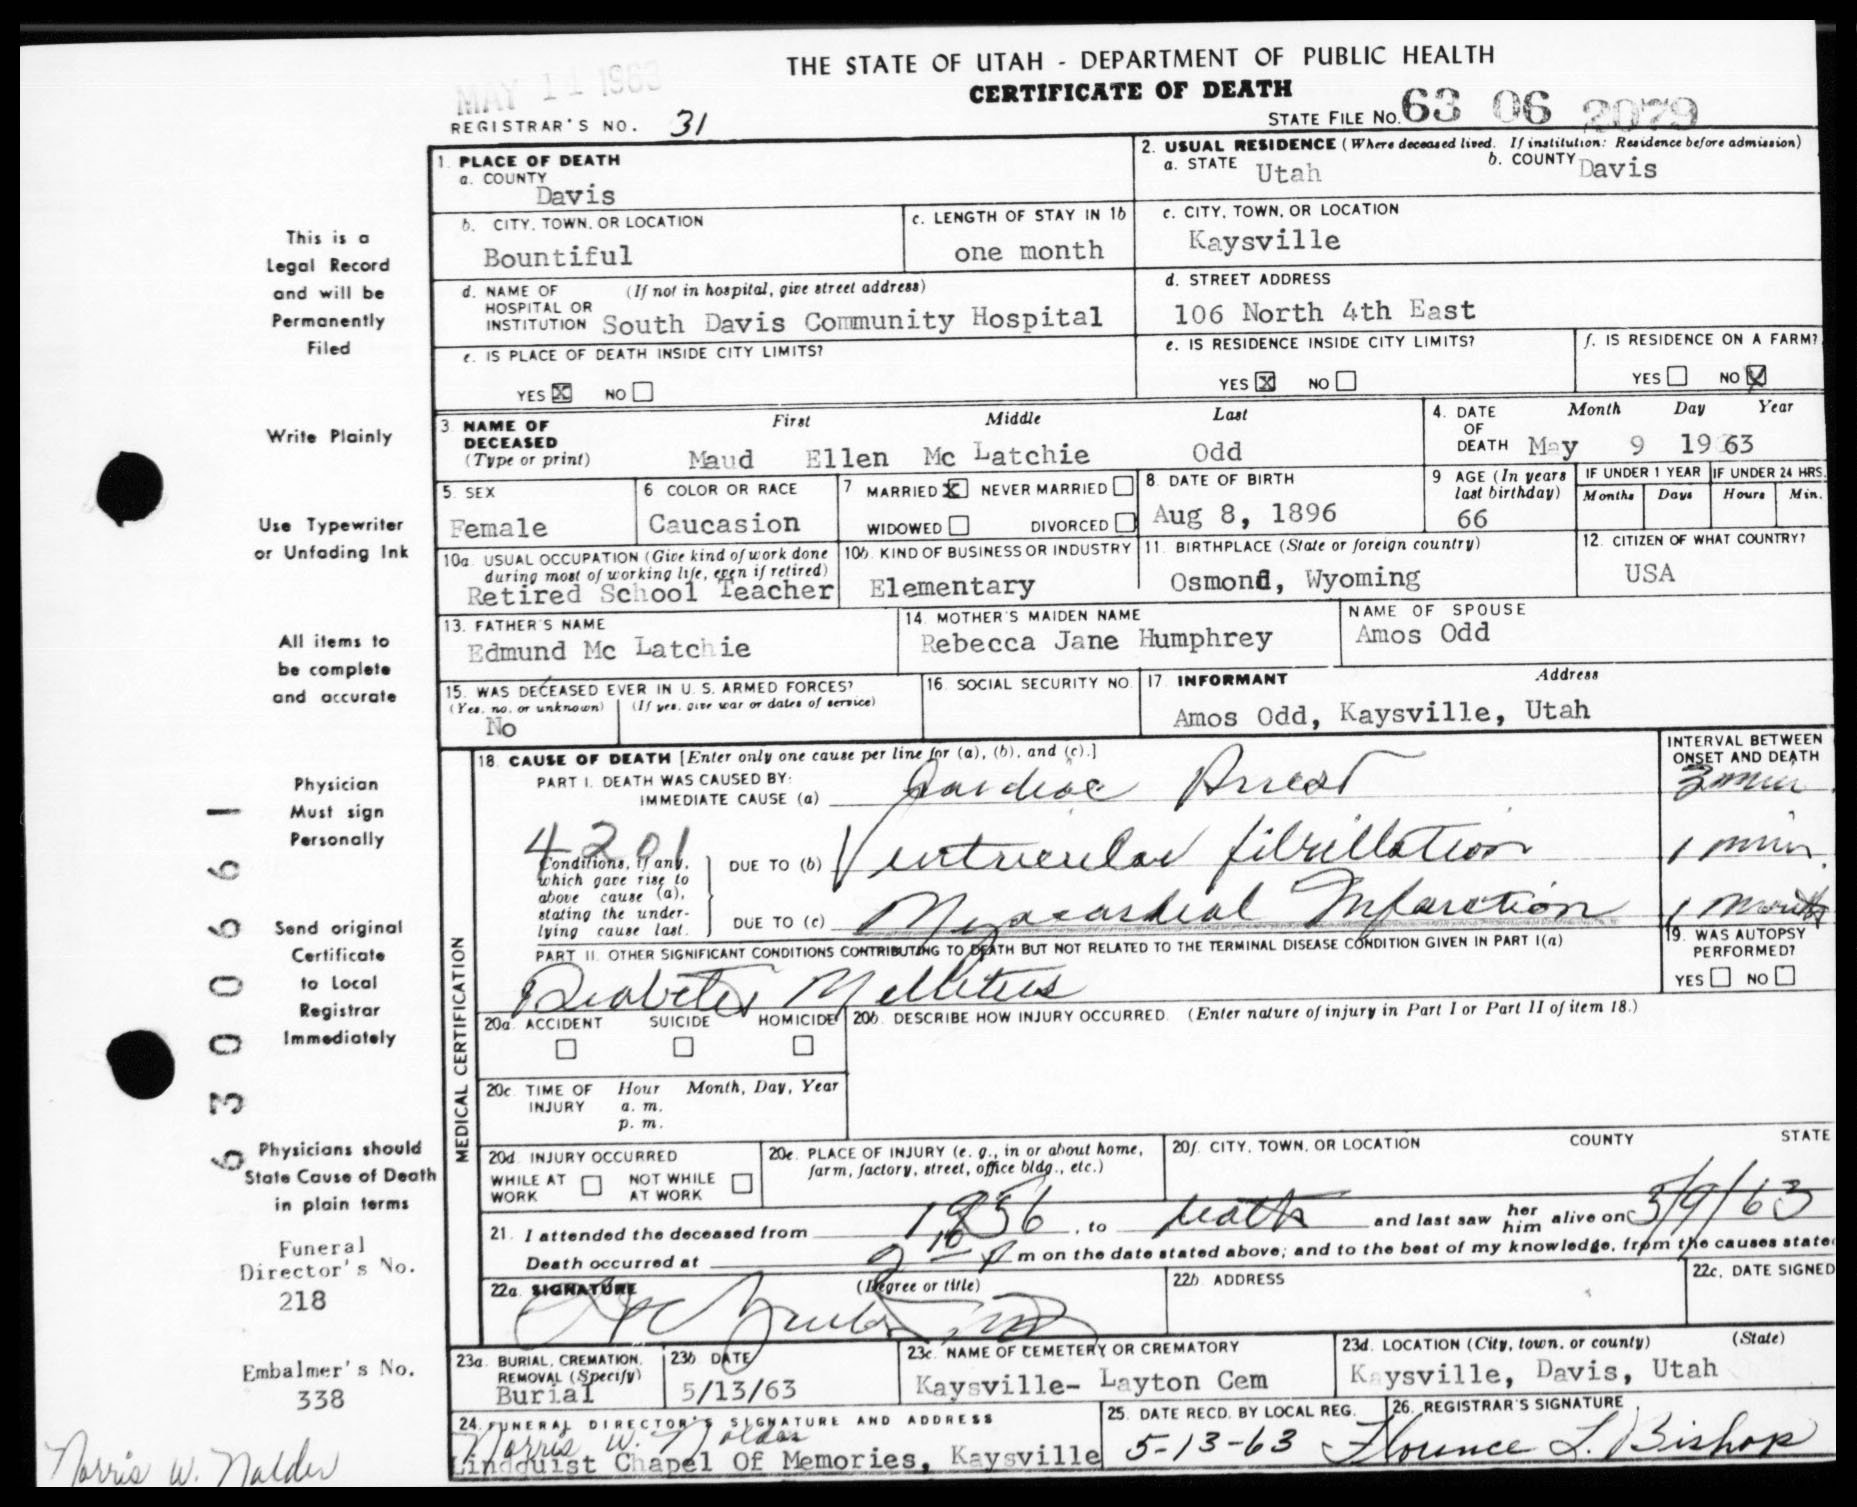 THE STATE OF UTAH - DEPARTMENT OF PUBLIC HEALTH
CERTIFICATE OF DEATH
MAY 11 1963
REGISTRAR'S NO. 31
STATE FILE NO. 63 06 2079
1. PLACE OF DEATH
a. COUNTY
Davis
2. USUAL RESIDENCE (Where deceased lived. If institution: Residence before admission)
a. STATE Utah b. COUNTY Davis
b. CITY, TOWN, OR LOCATION
Bountiful
c. LENGTH OF STAY IN 1b
one month
c. CITY, TOWN, OR LOCATION
Kaysville
d. NAME OF (If not in hospital, give street address)
HOSPITAL OR
INSTITUTION South Davis Community Hospital
d. STREET ADDRESS
106 North 4th East
e. IS PLACE OF DEATH INSIDE CITY LIMITS?
YES X NO
e. IS RESIDENCE INSIDE CITY LIMITS?
YES X NO
f. IS RESIDENCE ON A FARM?
YES NO X
3. NAME OF
DECEASED
(Type or print)
First Middle Last
Maud Ellen Mc Latchie Odd
4. DATE
OF
DEATH
Month Day Year
May 9 1963
5. SEX
Female
6 COLOR OR RACE
Caucasion
7 MARRIED X NEVER MARRIED
WIDOWED DIVORCED
8. DATE OF BIRTH
Aug 8, 1896
9 AGE (In years
last birthday)
66
IF UNDER 1 YEAR
Months Days
IF UNDER 24 HRS.
Hours Min.
10a. USUAL OCCUPATION (Give kind of work done
during most of working life, even if retired)
Retired School Teacher
10b. KIND OF BUSINESS OR INDUSTRY
Elementary
11. BIRTHPLACE (State or foreign country)
Osmond, Wyoming
12. CITIZEN OF WHAT COUNTRY?
USA
13. FATHER'S NAME
Edmund Mc Latchie
14. MOTHER'S MAIDEN NAME
Rebecca Jane Humphrey
NAME OF SPOUSE
Amos Odd
15. WAS DECEASED EVER IN U.S. ARMED FORCES?
(Yes, no, or unknown) (If yes, give war or dates of service)
No
16. SOCIAL SECURITY NO.
17. INFORMANT Address
Amos Odd, Kaysville, Utah
MEDICAL CERTIFICATION
18. CAUSE OF DEATH [Enter only one cause per line for (a), (b), and (c).]
INTERVAL BETWEEN
ONSET AND DEATH
PART I. DEATH WAS CAUSED BY:
IMMEDIATE CAUSE (a) Cardiac Arrest 3 min
4201
Conditions, if any,
which gave rise to
above cause (a),
stating the under-
lying cause last.
DUE TO (b) Ventricular fibrillation 1 min.
DUE TO (c) Myocardial Infarction 1 month
PART II. OTHER SIGNIFICANT CONDITIONS CONTRIBUTING TO DEATH BUT NOT RELATED TO THE TERMINAL DISEASE CONDITION GIVEN IN PART I(a)
Diabetes Mellitus
19. WAS AUTOPSY
PERFORMED?
YES NO
20a. ACCIDENT SUICIDE HOMICIDE
20b. DESCRIBE HOW INJURY OCCURRED. (Enter nature of injury in Part I or Part II of item 18.)
20c. TIME OF Hour Month, Day, Year
INJURY a. m.
p. m.
20d. INJURY OCCURRED
WHILE AT NOT WHILE
WORK AT WORK
20e. PLACE OF INJURY (e. g., in or about home,
farm, factory, street, office bldg., etc.)
20f. CITY, TOWN, OR LOCATION COUNTY STATE
21. I attended the deceased from 1956, to death and last saw her him alive on 5/9/63
Death occurred at m on the date stated above; and to the best of my knowledge, from the causes state
22a. SIGNATURE (Degree or title)
22b. ADDRESS
22c. DATE SIGNED
23a. BURIAL, CREMATION,
REMOVAL (Specify)
Burial
23b. DATE
5/13/63
23c. NAME OF CEMETERY OR CREMATORY
Kaysville- Layton Cem
23d. LOCATION (City, town, or county) (State)
Kaysville, Davis, Utah
24. FUNERAL DIRECTOR'S SIGNATURE AND ADDRESS
Norris W. Nalder
Lindquist Chapel Of Memories, Kaysville
25. DATE RECD. BY LOCAL REG.
5-13-63
26. REGISTRAR'S SIGNATURE
Florence L. Bishop
This is a
Legal Record
and will be
Permanently
Filed
Write Plainly
Use Typewriter
or Unfading Ink
All items to
be complete
and accurate
Physician
Must sign
Personally
Send original
Certificate
to Local
Registrar
Immediately
Physicians should
State Cause of Death
in plain terms
Funeral
Director's No.
218
Embalmer's No.
338
Norris W. Nalder
6300661